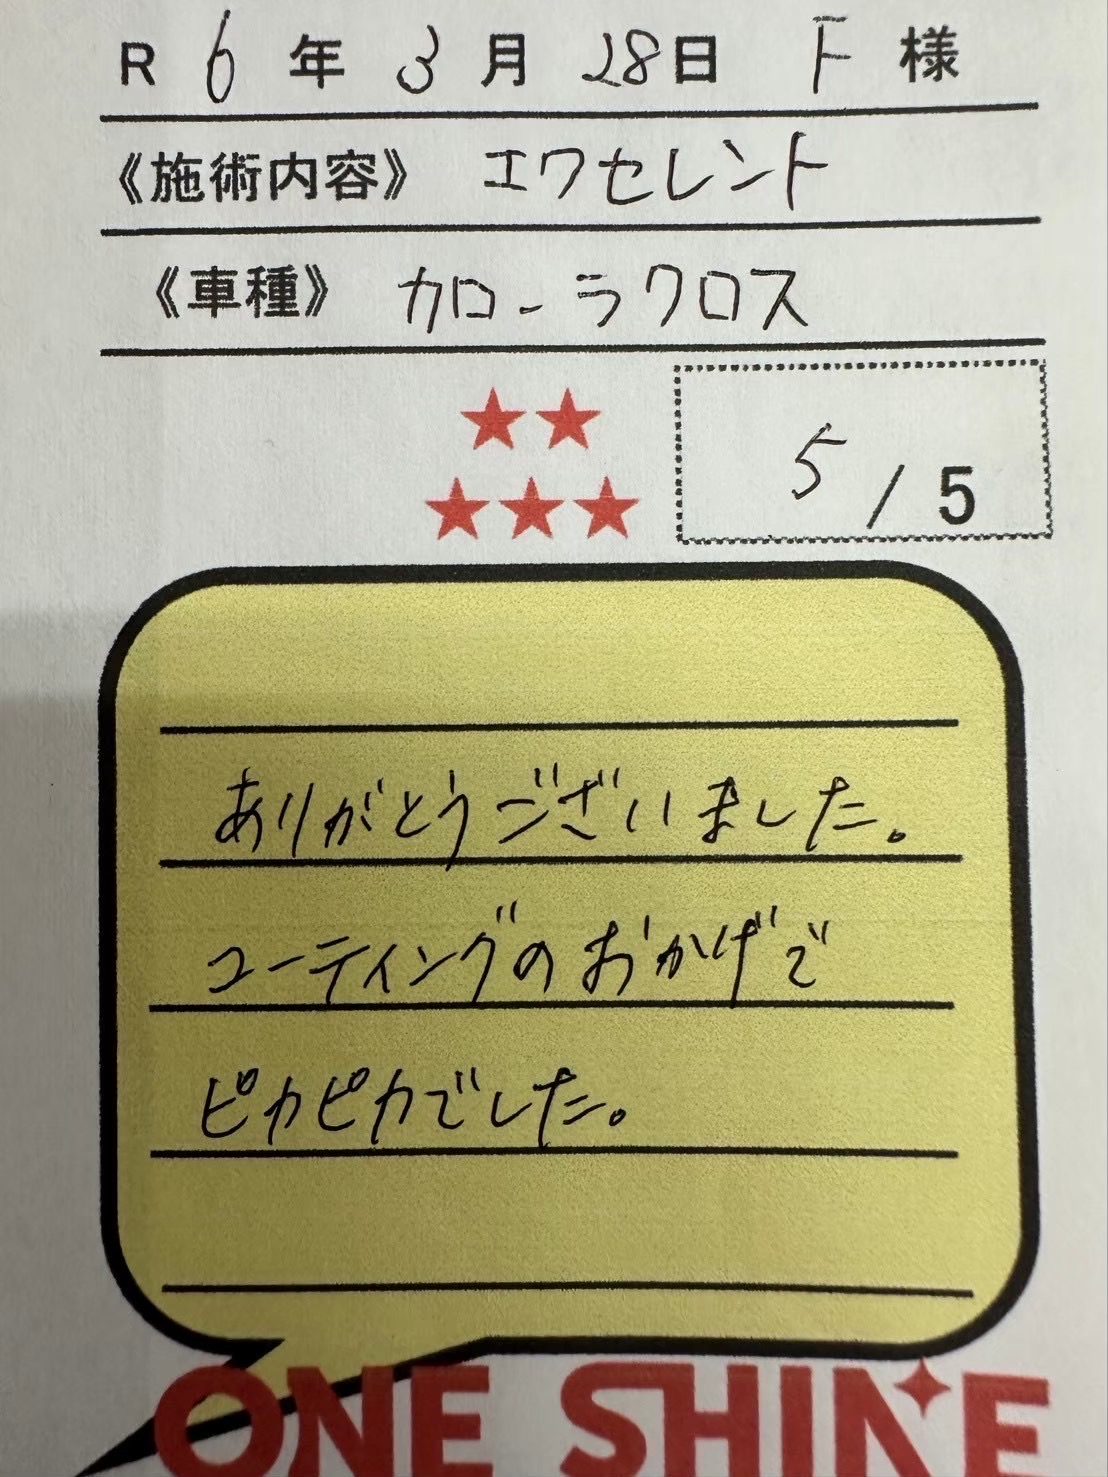 R 6 年 3 月 28 日 F 様
《施術内容》 エクセレント
《車種》 カローラクロス
5 / 5
ありがとうございました。
コーティングのおかげで
ピカピカでした。
ONE SHINE